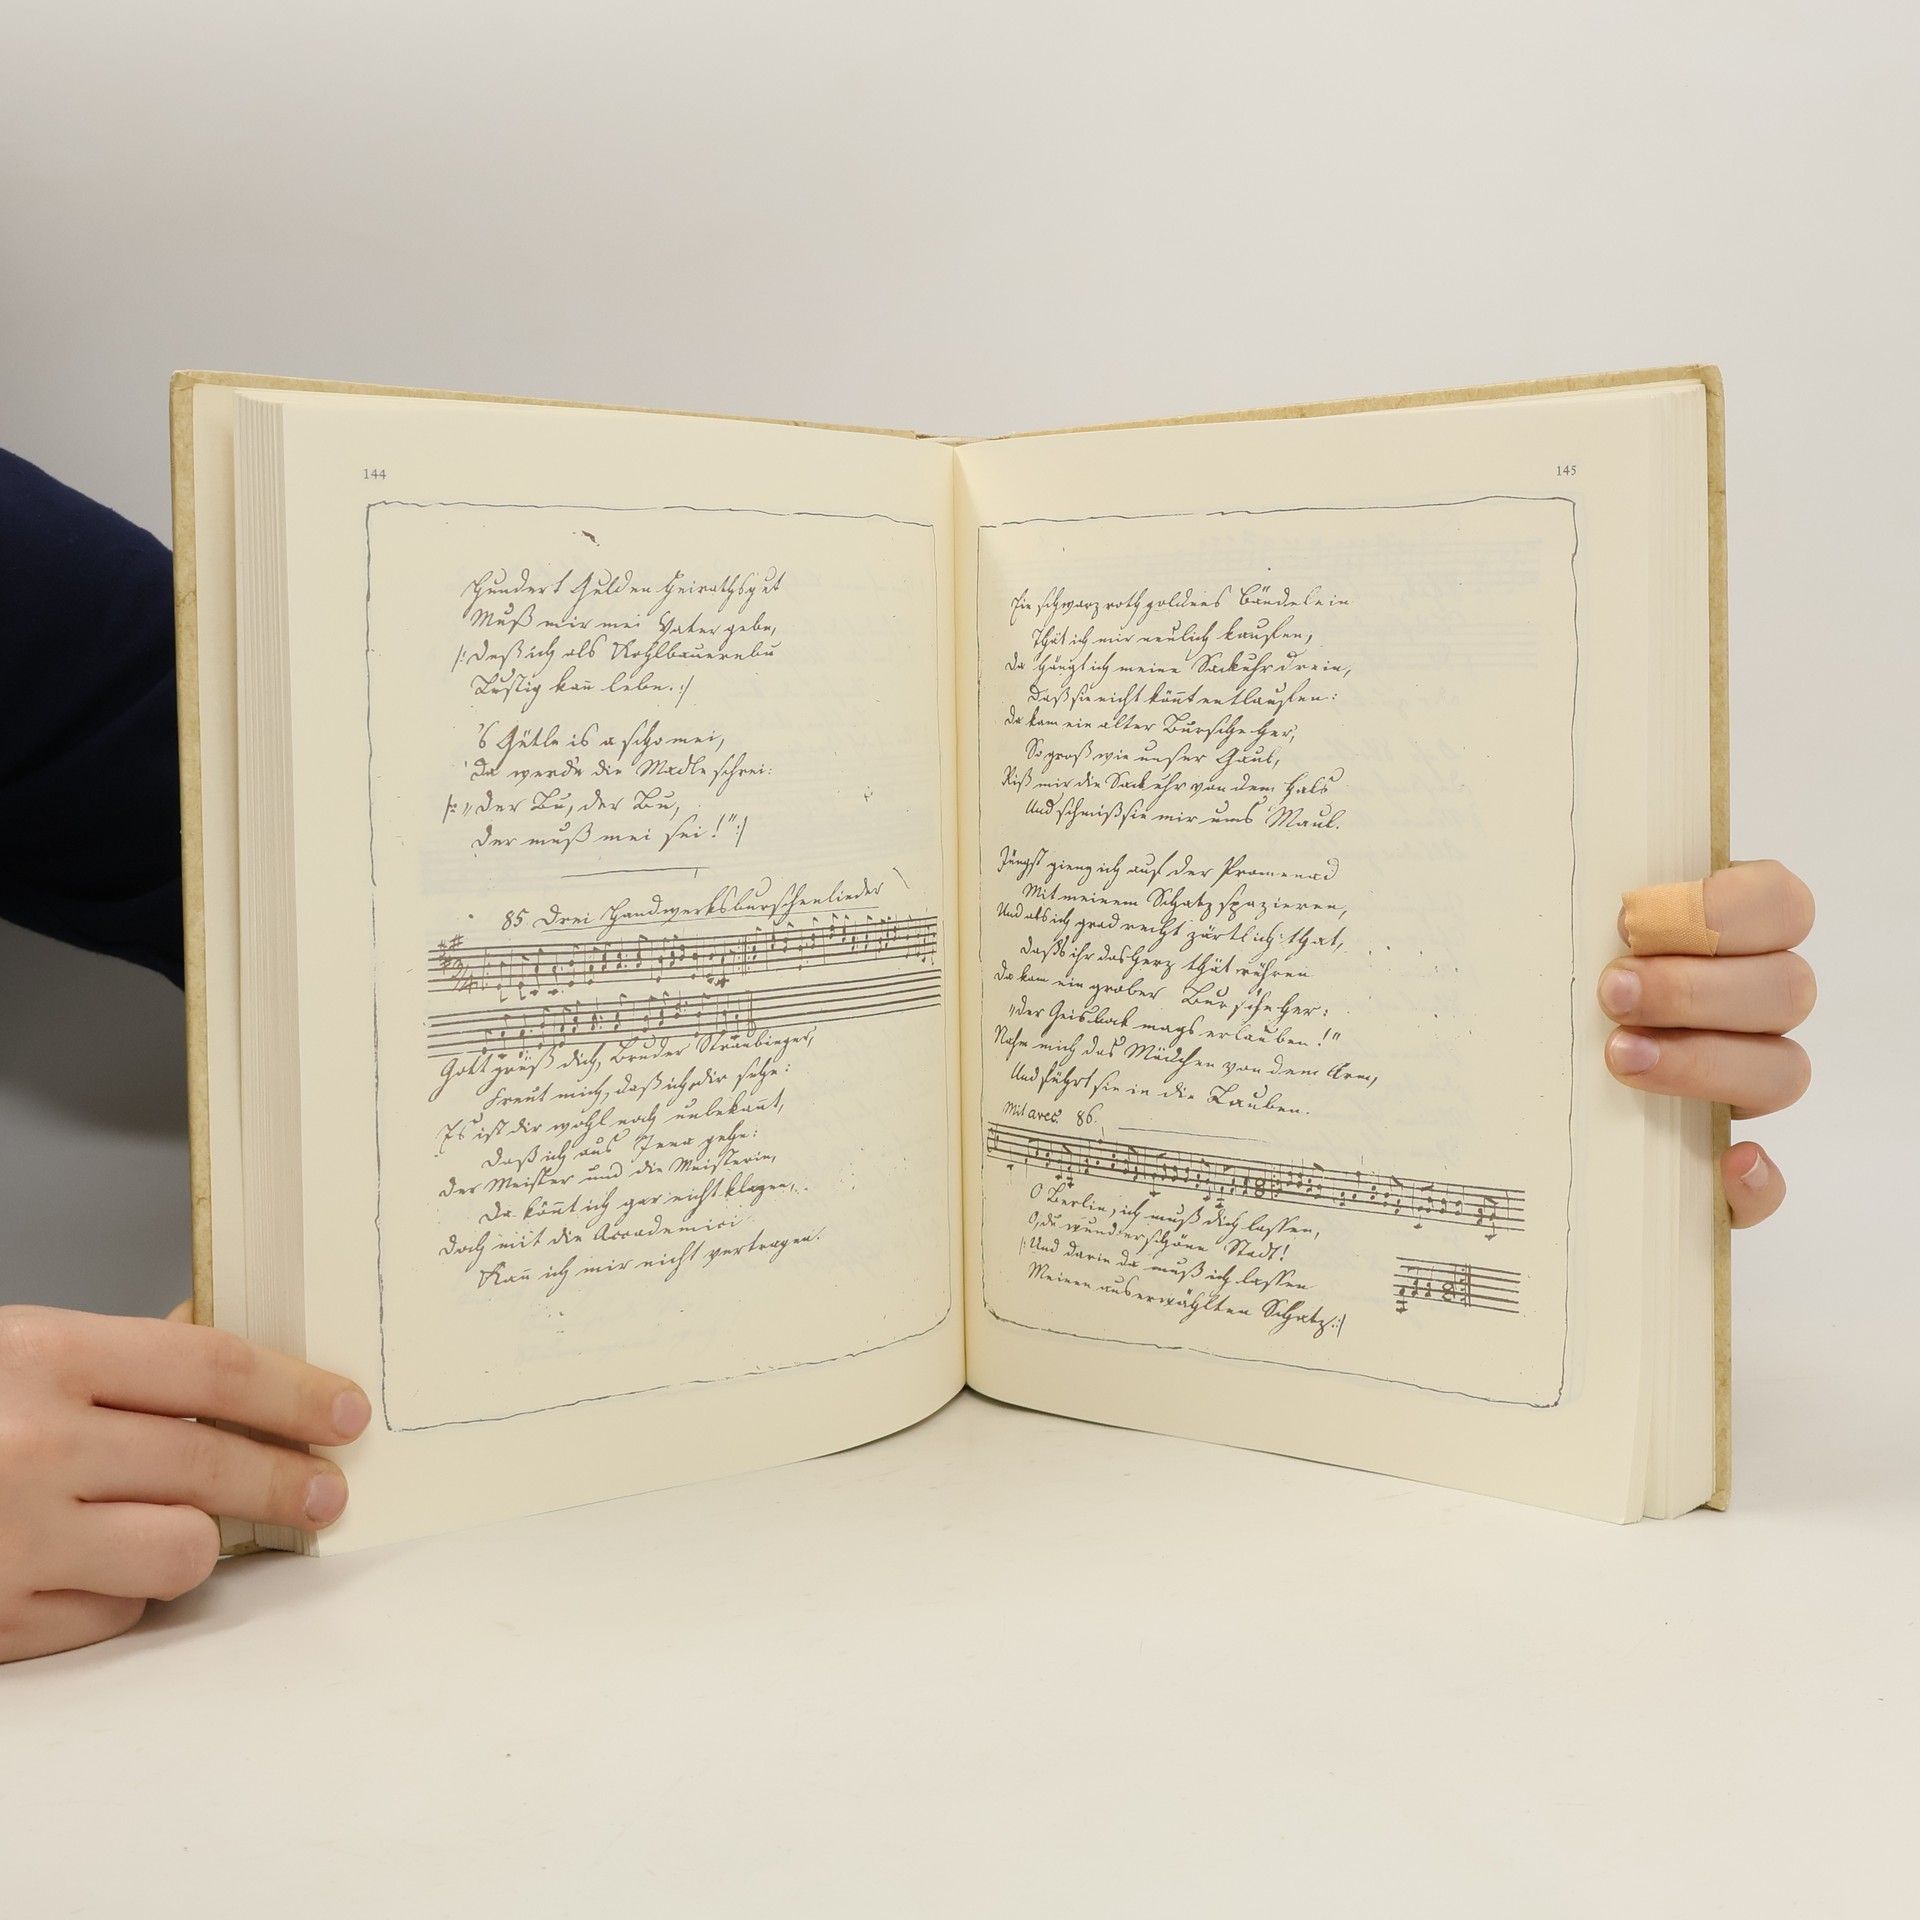 144
Hundert Gulden Heirathsgut
Muß mir mei Vater gebe,
/: Deß ich als Kohlbauernbu
Lustig kañ lebe. :/
's Gütle is a scho mei,
Da werde die Madle schrei:
/: „Der Bu, der Bu,
Der muß mei sei!" :/
85. Drei Handwerksburschenlieder
2/4
Gott grüß dich, Bruder Straubinger,
Freut mich, daß ich dir sehe:
Es ist dir wohl noch unbekañt,
Daß ich aus Jena gehe:
Der Meister und die Meisterin,
Da koñt ich gar nicht klagen,
Doch mit die Accademici
Kañ ich mir nicht vertragen.
145
Ein schwarz roth goldnes Bändelein
Thät ich mir neulich kaufen,
Da hängt ich meine Sackuhr drein,
Daß sie nicht köñt entlaufen:
Da kam ein alter Bursche her,
So groß wie unser Gaul,
Riß mir die Sackuhr von dem Hals
Und schmiß sie mir ums Maul.
Jüngst gieng ich auf der Promenad
Mit meinem Schatz spazieren,
Und als ich grad recht zärtlich that,
Daß ihr das Herz thät rühren
Da kam ein grober Bursche her:
„Der Geisbock mags erlauben!"
Nahm mich das Mädchen von dem Arm,
Und führt sie in die Lauben.
86.
O Berlin, ich muß dich lassen,
O, du wunderschöne Stadt!
/: Und darin da muß ich lassen
Meinen auserwählten Schatz. :/